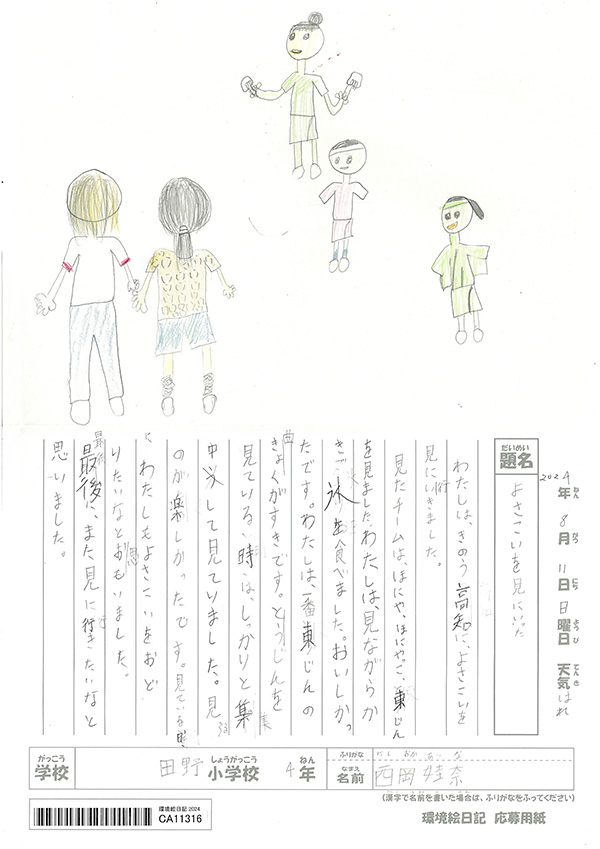 2024年 8月 11日 日曜日 天気 はれ
ねん がつ にち ようび てんき
だいめい
題名
よさこいを見にいった
わたしは、きのう高知に、よさこいを
見にいきました。
見たチームは、ほにや、ほにやっこ、東じん
を見ました。わたしは、見ながらか
きご氷を食べました。おいしかっ
たです。わたしは、一番東じんの
きょくがすきです。とうじんを
見ている時は、しっかりと集
中して見ていました。見
のが楽しかったです。見ている
わたしもよさこいをおど
りたいなとおもいました。
最後に、また見に行きたいなと
思いました。
がっこう
学校
田野 小学校 4年
しょうがっこう ねん
ふりがな にしおか あいな
なまえ
名前
西岡娃奈
(漢字で名前を書いた場合は、ふりがなをふってください)
環境絵日記 2024
CA11316
環境絵日記 応募用紙